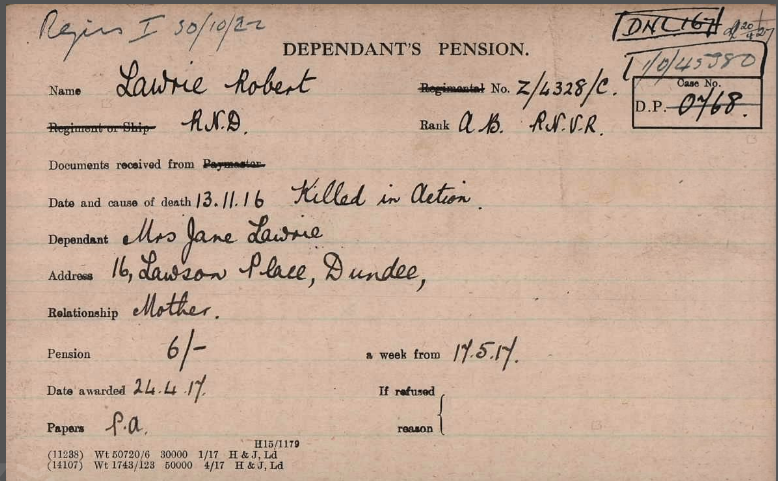 Regius I 30/10/22 DNL 1671 20/4/27
1/0/45380
DEPENDANT'S PENSION.
Name Lawrie Robert Regimental No. Z/4328/C. Case No.
D.P. 0768.
Regiment or Ship R.N.D. Rank A.B. R.N.V.R.
Documents received from Paymaster
Date and cause of death 13.11.16 Killed in Action.
Dependant Mrs Jane Lawrie
Address 16, Lawson Place, Dundee,
Relationship Mother.
Pension 6/- a week from 17.5.17.
Date awarded 24.4.17. If refused
Papers P.a. reason {
H15/1179
(11238) Wt 50720/6 30000 1/17 H & J, Ld
(14107) Wt 1743/123 50000 4/17 H & J, Ld